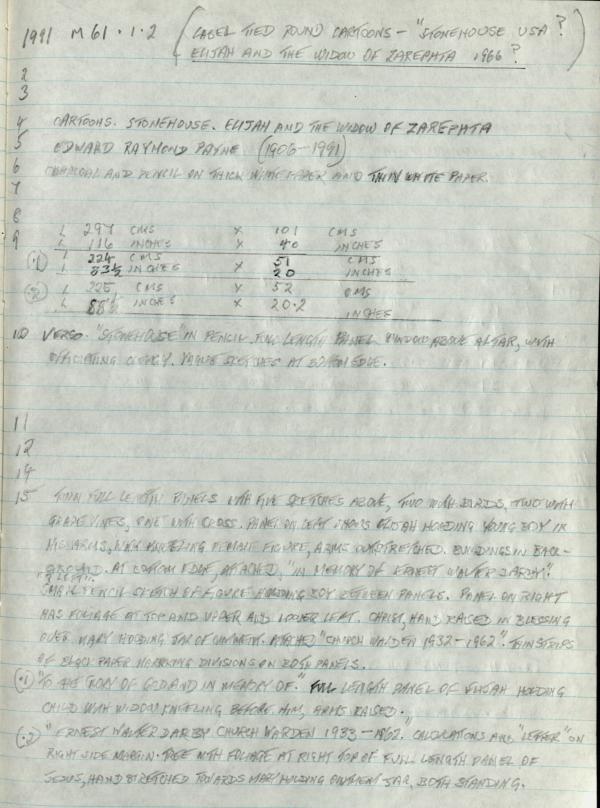 1991 M61.1.2 (LABEL TIED ROUND CARTOONS - "STONEHOUSE USA?
ELIJAH AND THE WIDOW OF ZAREPHTA 1966?)
2
3
4 CARTOONS. STONEHOUSE. ELIJAH AND THE WIDOW OF ZAREPHTA
5 EDWARD RAYMOND PAYNE (1906-1991)
6 CHARCOAL AND PENCIL ON THICK WHITE PAPER AND THIN WHITE PAPER.
7
8
9 L 297 CMS X 101 CMS
L 116 INCHES X 40 INCHES
(.1) L 224 CMS X 51 CMS
L 83½ INCHES X 20 INCHES
(.2) L 225 CMS X 52 CMS
L 88½ INCHES X 20.2 INCHES
10 VERSO. "STONEHOUSE" IN PENCIL. FULL LENGTH PANEL WINDOW ABOVE ALTAR, WITH
OFFICIATING CLERGY. VAGUE SKETCHES AT BOTTOM EDGE.
11
12
14
15 TWIN FULL LENGTH PANELS WITH FIVE SKETCHES ABOVE, TWO WITH BIRDS, TWO WITH
GRAPE VINES, ONE WITH CROSS. PANEL ON LEFT SHOWS ELIJAH HOLDING YOUNG BOY IN
HIS ARMS, WITH KNEELING FEMALE FIGURE, ARMS OUTSTRETCHED. BUILDINGS IN BACK-
GROUND. AT BOTTOM EDGE, ATTACHED, "IN MEMORY OF ERNEST WALTER DARBY".
SMALL PENCIL SKETCH OF FIGURE HOLDING BOY BETWEEN PANELS. PANEL ON RIGHT
HAS FOLIAGE AT TOP AND UPPER AND LOWER LEFT. CHRIST, HAND RAISED IN BLESSING
OVER MARY HOLDING JAR OF OINTMENT. ATTACHED "CHURCH WARDEN 1932-1962". THIN STRIPS
OF BLACK PAPER MARKING DIVISIONS ON BOTH PANELS.
(.1) "TO THE GLORY OF GOD AND IN MEMORY OF." FULL LENGTH PANEL OF ELIJAH HOLDING
CHILD WITH WIDOW KNEELING BEFORE HIM, ARMS RAISED.
(.2) "ERNEST WALTER DARBY CHURCH WARDEN 1933-1962." CALCULATIONS AND "LETTER" ON
RIGHT SIDE MARGIN. TREE WITH FOLIAGE AT RIGHT TOP OF FULL LENGTH PANEL OF
JESUS, HAND STRETCHED TOWARDS MARY HOLDING OINTMENT JAR, BOTH STANDING.